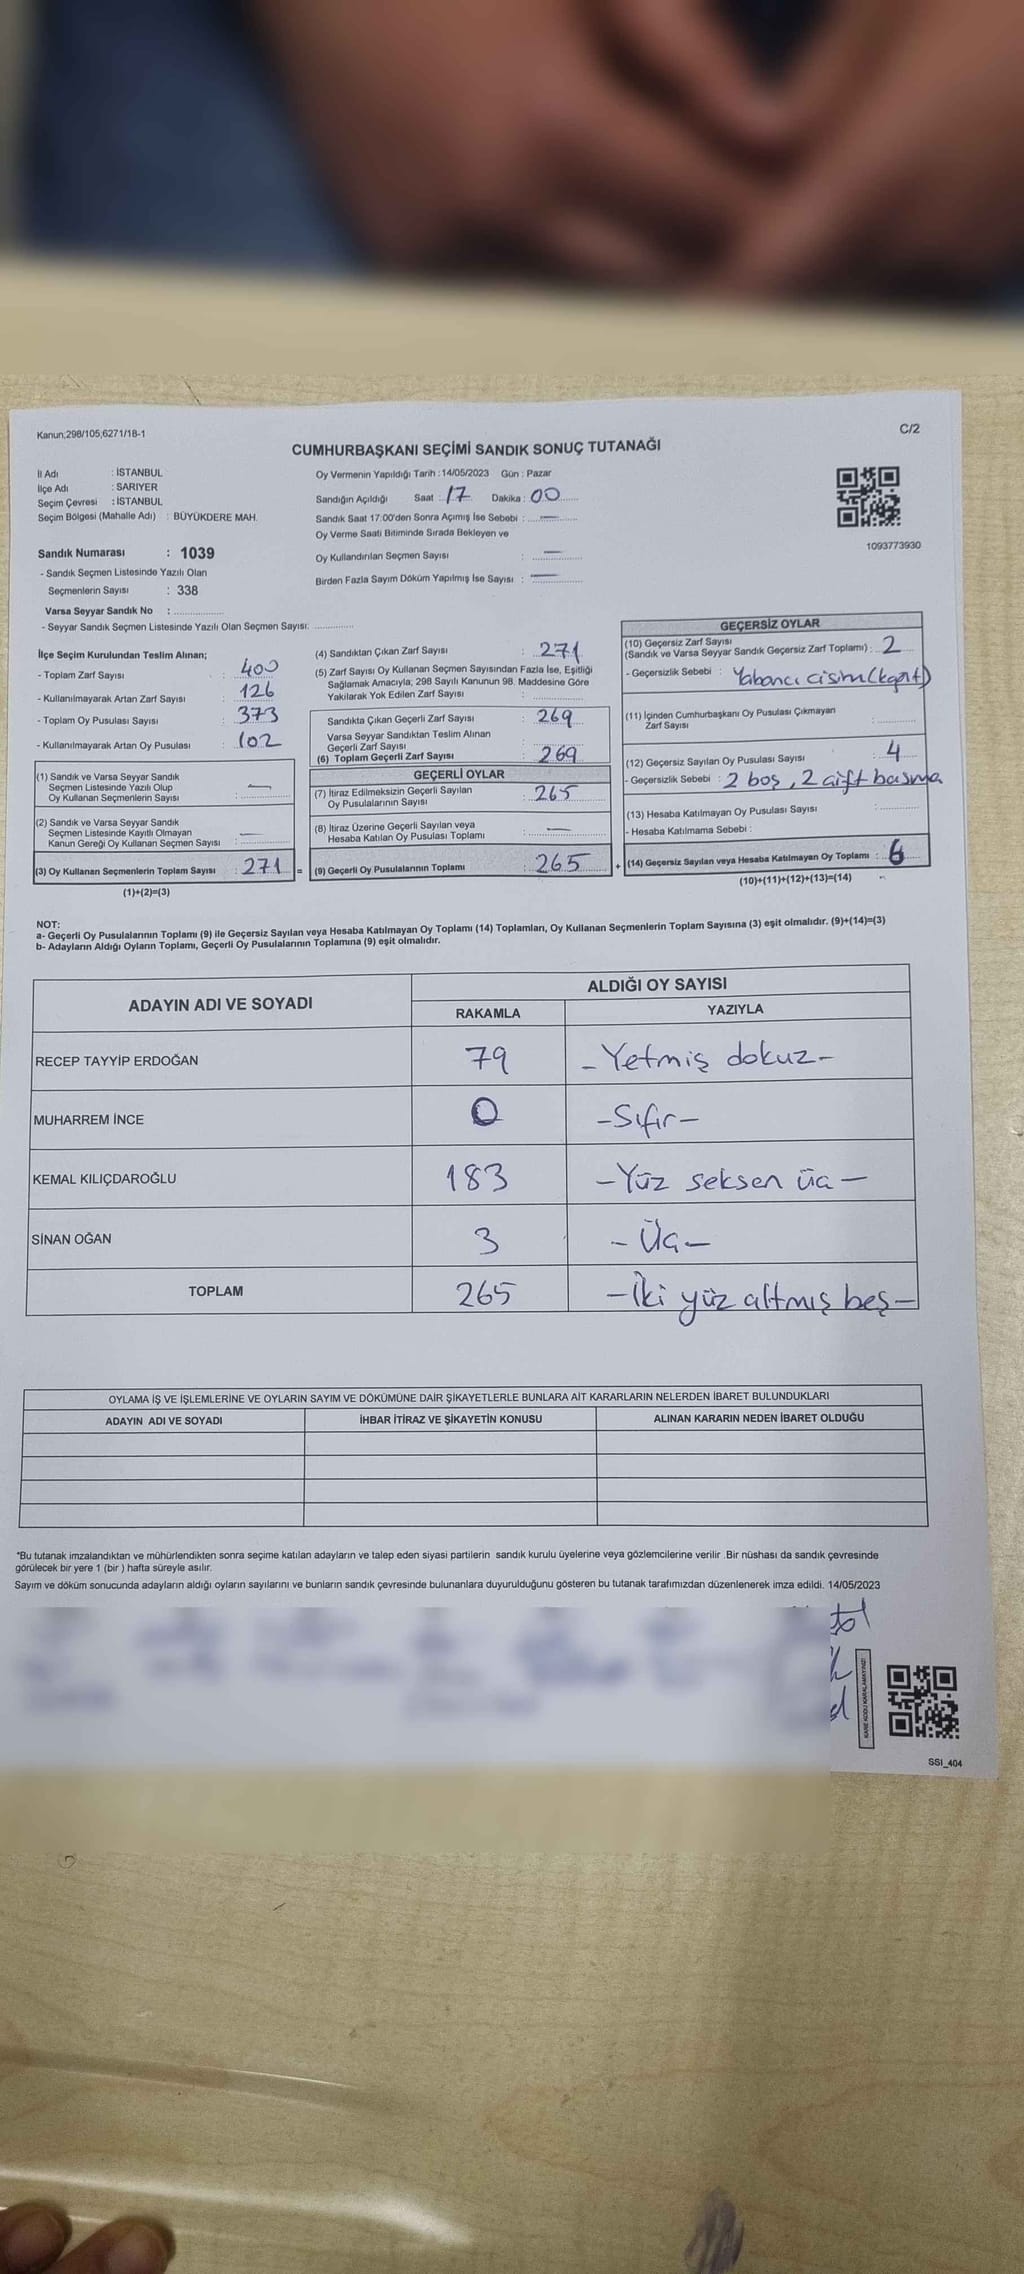 Kanun;298/105;6271/18-1
C/2
CUMHURBAŞKANI SEÇİMİ SANDIK SONUÇ TUTANAĞI
İl Adı : İSTANBUL
İlçe Adı : SARIYER
Seçim Çevresi : İSTANBUL
Seçim Bölgesi (Mahalle Adı) : BÜYÜKDERE MAH.
Sandık Numarası : 1039
- Sandık Seçmen Listesinde Yazılı Olan
Seçmenlerin Sayısı : 338
Varsa Seyyar Sandık No :
- Seyyar Sandık Seçmen Listesinde Yazılı Olan Seçmen Sayısı:
Oy Vermenin Yapıldığı Tarih :14/05/2023 Gün : Pazar
Sandığın Açıldığı Saat : 17 Dakika : 00
Sandık Saat 17:00'den Sonra Açımış İse Sebebi : —
Oy Verme Saati Bitiminde Sırada Bekleyen ve
Oy Kullandırılan Seçmen Sayısı : —
Birden Fazla Sayım Döküm Yapılmış İse Sayısı : —
1093773930
İlçe Seçim Kurulundan Teslim Alınan;
- Toplam Zarf Sayısı : 400
- Kullanılmayarak Artan Zarf Sayısı : 126
- Toplam Oy Pusulası Sayısı : 373
- Kullanılmayarak Artan Oy Pusulası : 102
(1) Sandık ve Varsa Seyyar Sandık
Seçmen Listesinde Yazılı Olup
Oy Kullanan Seçmenlerin Sayısı : —
(2) Sandık ve Varsa Seyyar Sandık
Seçmen Listesinde Kayıtlı Olmayan
Kanun Gereği Oy Kullanan Seçmen Sayısı : —
(3) Oy Kullanan Seçmenlerin Toplam Sayısı : 271 =
(1)+(2)=(3)
(4) Sandıktan Çıkan Zarf Sayısı : 271
(5) Zarf Sayısı Oy Kullanan Seçmen Sayısından Fazla İse, Eşitliği
Sağlamak Amacıyla; 298 Sayılı Kanunun 98. Maddesine Göre
Yakılarak Yok Edilen Zarf Sayısı :
Sandıkta Çıkan Geçerli Zarf Sayısı : 269
Varsa Seyyar Sandıktan Teslim Alınan
Geçerli Zarf Sayısı :
(6) Toplam Geçerli Zarf Sayısı : 269
GEÇERLİ OYLAR
(7) İtiraz Edilmeksizin Geçerli Sayılan
Oy Pusulalarının Sayısı : 265
(8) İtiraz Üzerine Geçerli Sayılan veya
Hesaba Katılan Oy Pusulası Toplamı : —
(9) Geçerli Oy Pusulalarının Toplamı : 265 +
GEÇERSİZ OYLAR
(10) Geçersiz Zarf Sayısı
(Sandık ve Varsa Seyyar Sandık Geçersiz Zarf Toplamı) : 2
- Geçersizlik Sebebi : Yabancı cisim (kağıt)
(11) İçinden Cumhurbaşkanı Oy Pusulası Çıkmayan
Zarf Sayısı :
(12) Geçersiz Sayılan Oy Pusulası Sayısı : 4
- Geçersizlik Sebebi : 2 boş, 2 çift basma
(13) Hesaba Katılmayan Oy Pusulası Sayısı :
- Hesaba Katılmama Sebebi :
(14) Geçersiz Sayılan veya Hesaba Katılmayan Oy Toplamı : 6
(10)+(11)+(12)+(13)=(14)
NOT:
a- Geçerli Oy Pusulalarının Toplamı (9) ile Geçersiz Sayılan veya Hesaba Katılmayan Oy Toplamı (14) Toplamları, Oy Kullanan Seçmenlerin Toplam Sayısına (3) eşit olmalıdır. (9)+(14)=(3)
b- Adayların Aldığı Oyların Toplamı, Geçerli Oy Pusulalarının Toplamına (9) eşit olmalıdır.
ADAYIN ADI VE SOYADI
ALDIĞI OY SAYISI
RAKAMLA YAZIYLA
RECEP TAYYİP ERDOĞAN 79 - Yetmiş dokuz -
MUHARREM İNCE 0 - Sıfır -
KEMAL KILIÇDAROĞLU 183 - Yüz seksen üç -
SİNAN OĞAN 3 - Üç -
TOPLAM 265 - İki yüz altmış beş -
OYLAMA İŞ VE İŞLEMLERİNE VE OYLARIN SAYIM VE DÖKÜMÜNE DAİR ŞİKAYETLERLE BUNLARA AİT KARARLARIN NELERDEN İBARET BULUNDUKLARI
ADAYIN ADI VE SOYADI İHBAR İTİRAZ VE ŞİKAYETİN KONUSU ALINAN KARARIN NEDEN İBARET OLDUĞU
*Bu tutanak imzalandıktan ve mühürlendikten sonra seçime katılan adayların ve talep eden siyasi partilerin sandık kurulu üyelerine veya gözlemcilerine verilir .Bir nüshası da sandık çevresinde
görülecek bir yere 1 (bir ) hafta süreyle asılır.
Sayım ve döküm sonucunda adayların aldığı oyların sayılarını ve bunların sandık çevresinde bulunanlara duyurulduğunu gösteren bu tutanak tarafımızdan düzenlenerek imza edildi. 14/05/2023
KARE KODU KARALAMAYINIZ!
SSI_404